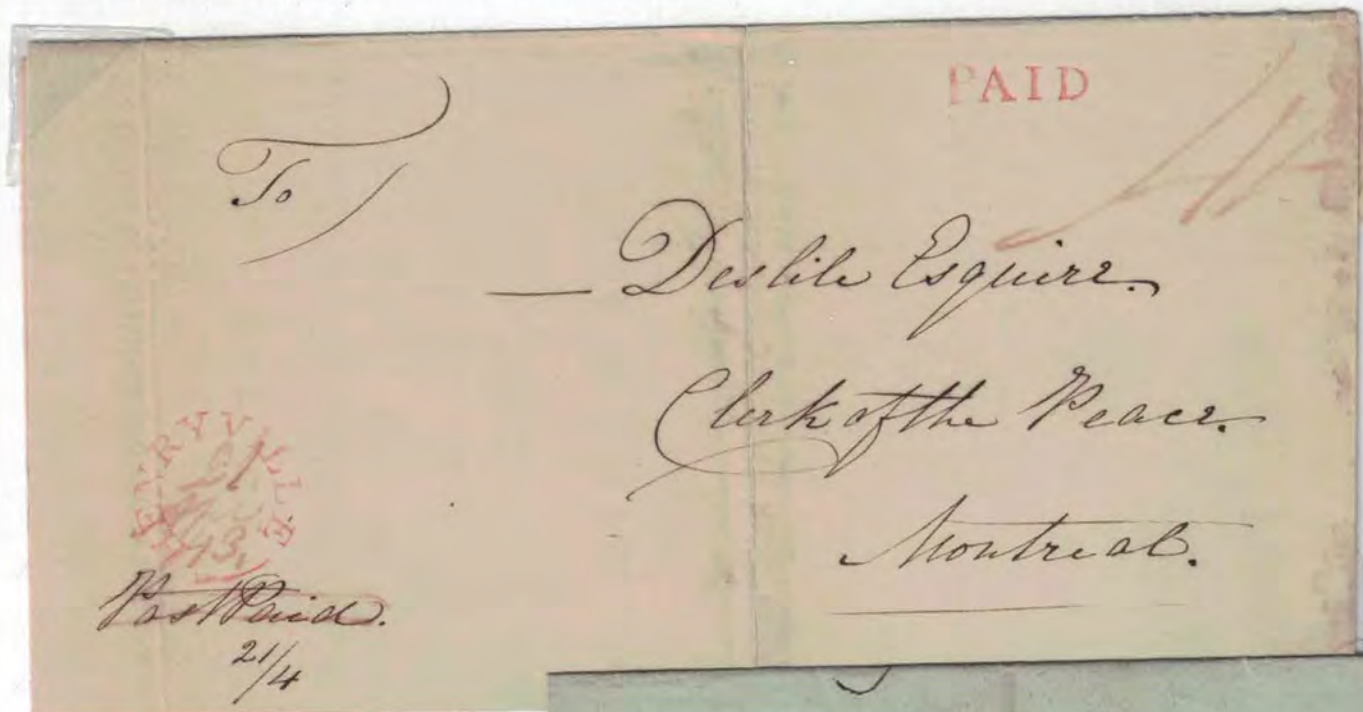 PAID
To
— Deslile Esquire.
Clerk of the Peace.
Montreal.
HENRYVILLE
21
Post Paid.
21/4